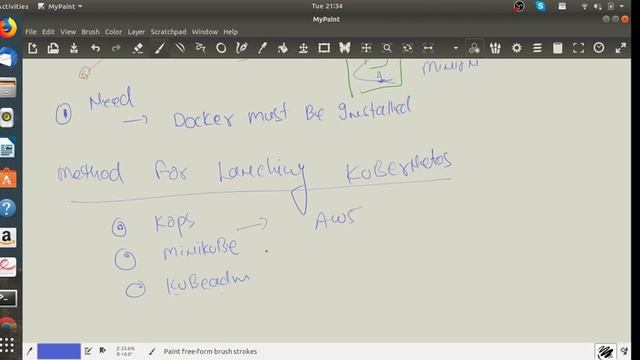 Activities MyPaint Tue 21:34
MyPaint
File Edit View Brush Color Layer Scratchpad Window Help
MINION
① Need
→ Docker must Be Installed
method For Lanching KuBerNetos
Kops → AWS
MINIKUBe
KUBeadm
Z: 25.0%
R: +0.0°
Paint free-form brush strokes